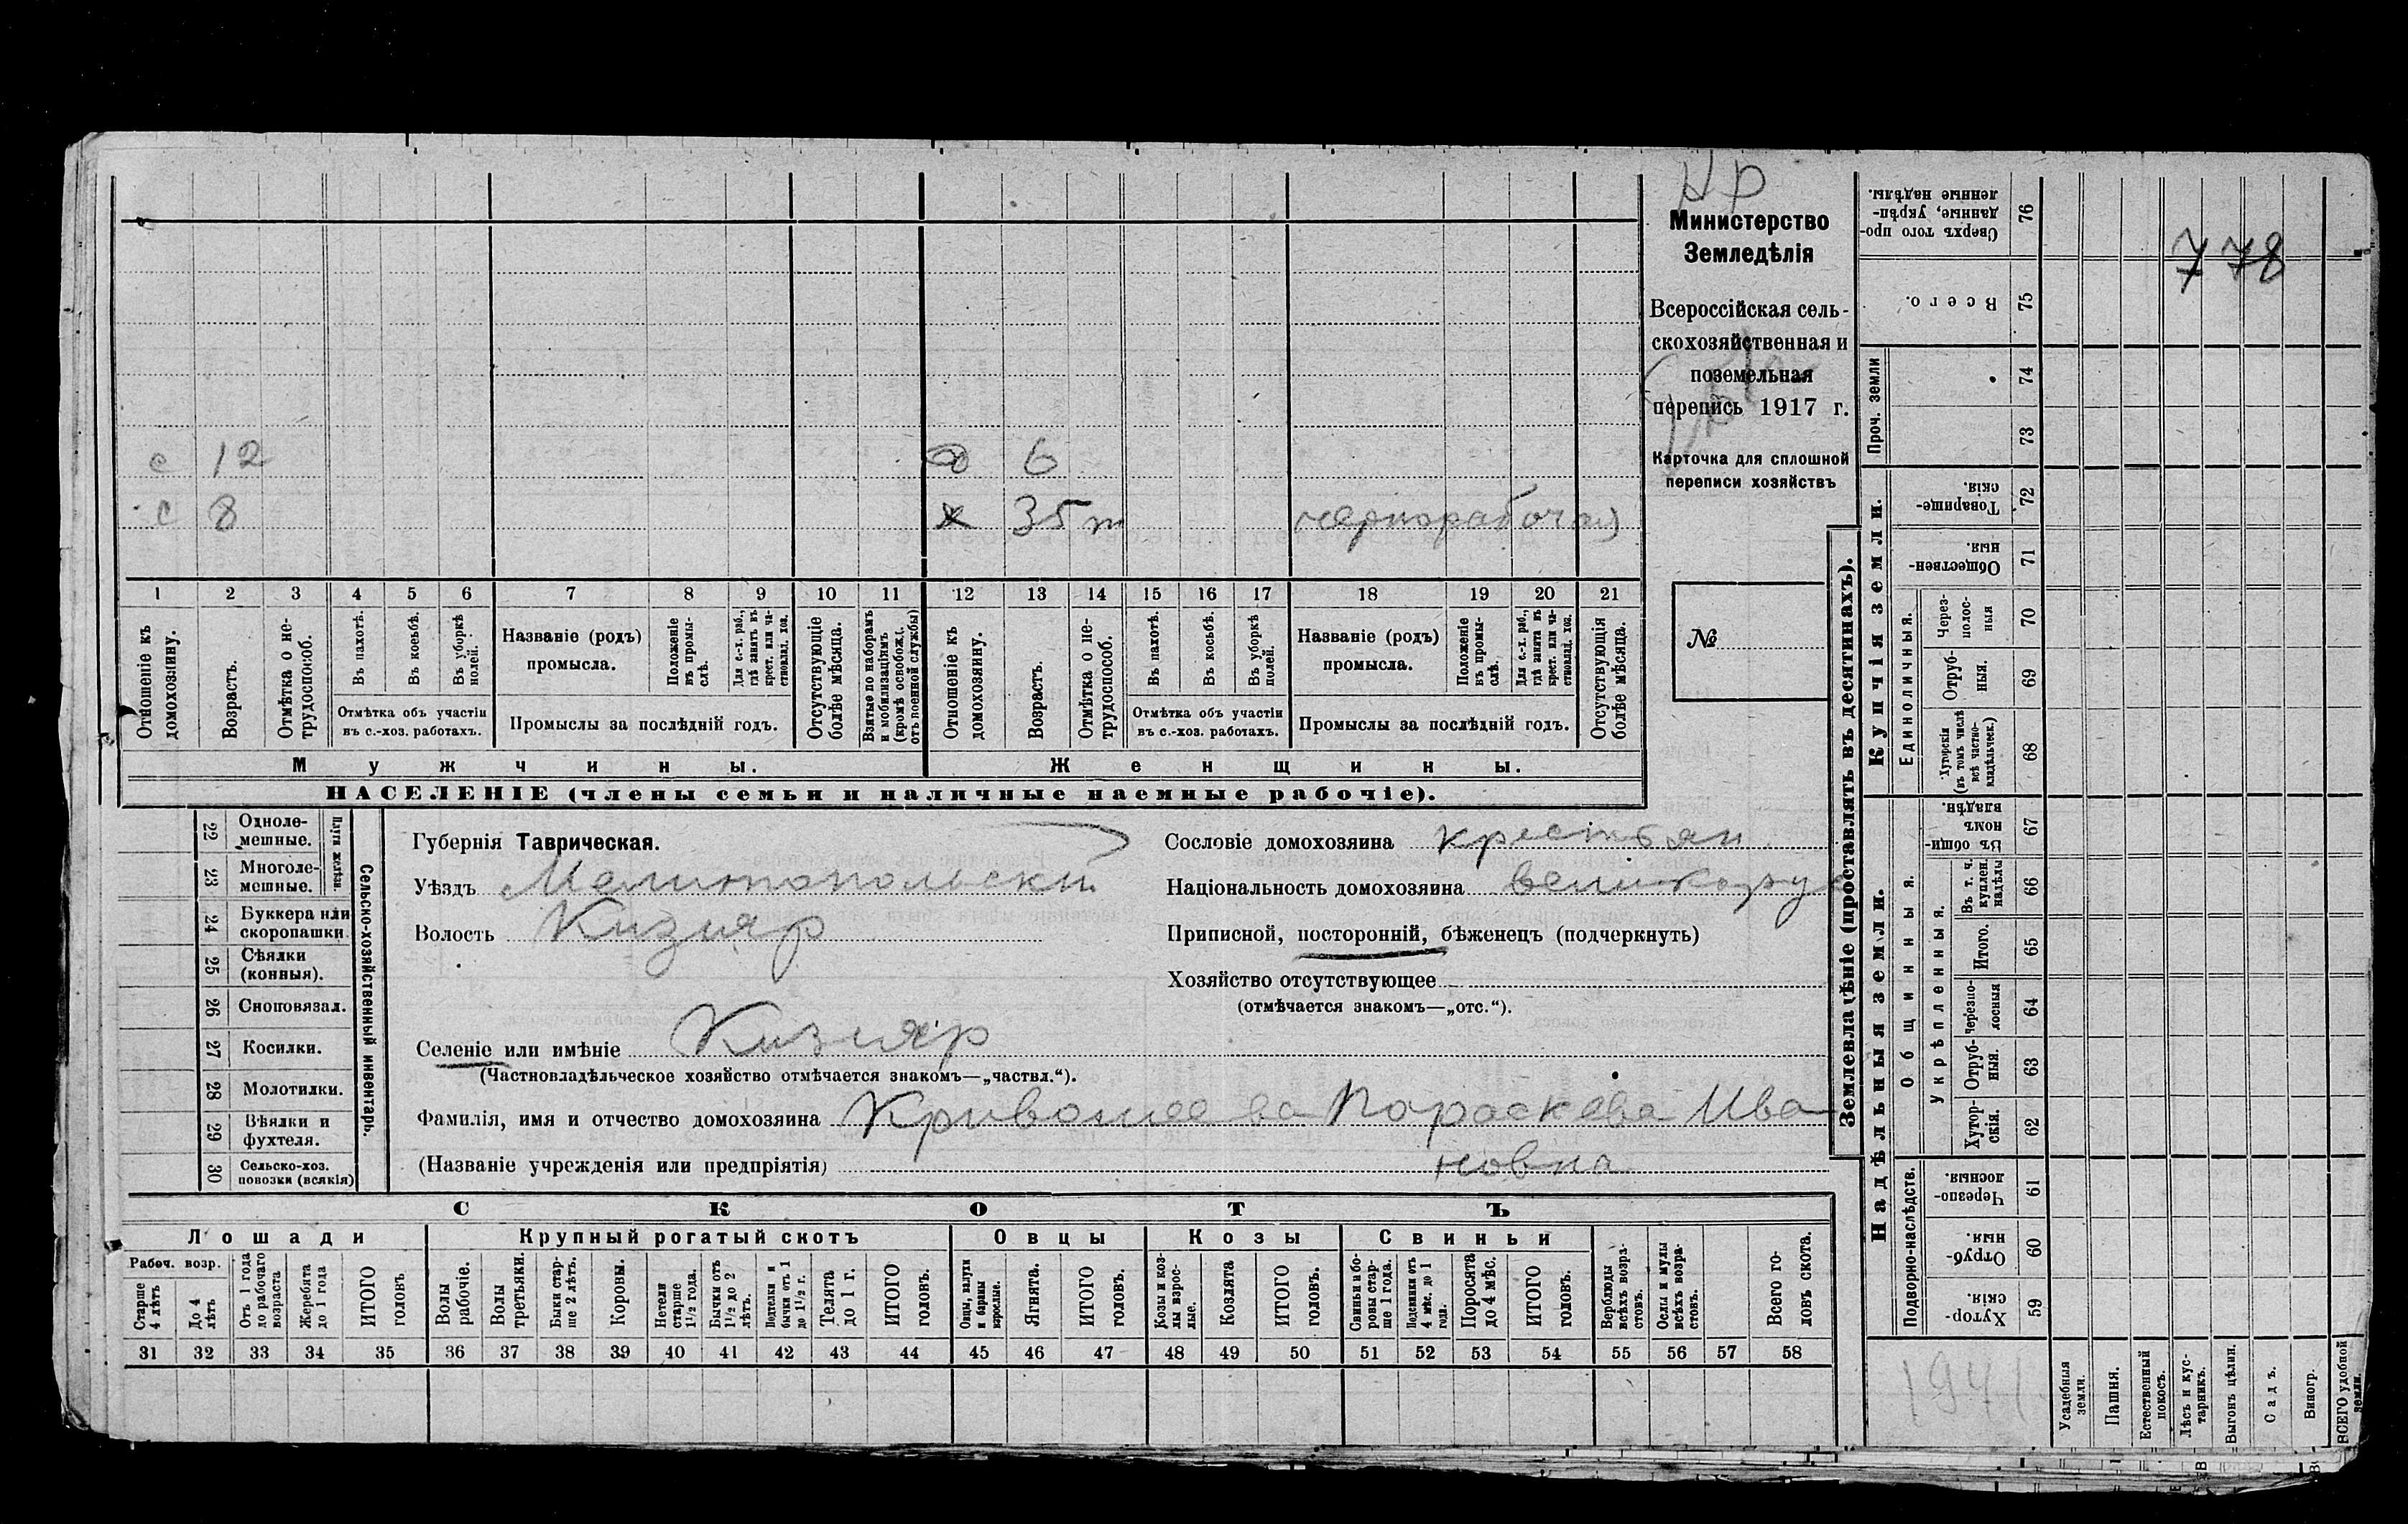 НР
Министерство
Земледѣлія
Всероссійская сель-
скохозяйственная и
поземельная
перепись 1917 г.
Карточка для сплошной
переписи хозяйствъ
№
с 12
д 6
с 8
х 35 чернорабочая
1 2 3 4 5 6 7 8 9 10 11 12 13 14 15 16 17 18 19 20 21
Отношеніе къ домохозяину.
Возрастъ.
Отмѣтка о не-трудоспособ.
Въ пахотѣ.
Въ косьбѣ.
Въ уборкѣ полей.
Отмѣтка объ участіи
въ с.-хоз. работахъ.
Названіе (родъ)
промысла.
Положеніе въ промы-слѣ.
Для с.-х. раб., гдѣ занятъ въ крест. или ча-стновлад. хоз.
Промыслы за послѣдній годъ.
Отсутствующіе болѣе мѣсяца.
Взятые по наборамъ и мобилизаціямъ (кромѣ освобожд. отъ военной службы)
Отношеніе къ домохозяину.
Возрастъ.
Отмѣтка о не-трудоспособ.
Въ пахотѣ.
Въ косьбѣ.
Въ уборкѣ полей.
Отмѣтка объ участіи
въ с.-хоз. работахъ.
Названіе (родъ)
промысла.
Положеніе въ промы-слѣ.
Для с.-х. раб., гдѣ занята въ крест. или ча-стновлад. хоз.
Промыслы за послѣдній годъ.
Отсутствующія болѣе мѣсяца.
Мужчины.
Женщины.
НАСЕЛЕНІЕ (члены семьи и наличные наемные рабочіе).
22 Одноле-мешные.
23 Многоле-мешные.
Плуги желѣзн.
24 Буккера или скоропашки
25 Сѣялки (конныя).
26 Сноповязал.
27 Косилки.
28 Молотилки.
29 Вѣялки и фухтеля.
30 Сельско-хоз. повозки (всякія)
Сельско-хозяйственный инвентарь.
Губернія Таврическая.
Уѣздъ Мелитопольскій
Волость Кизияр
Селеніе или имѣніе Кизияр
(Частновладѣльческое хозяйство отмѣчается знакомъ—„частвл.“).
Фамилія, имя и отчество домохозяина Кривошеева Пораскева Ива
(Названіе учрежденія или предпріятія) новна
Сословіе домохозяина крестьян
Національность домохозяина великору
Приписной, посторонній, бѣженецъ (подчеркнуть)
Хозяйство отсутствующее
(отмѣчается знакомъ—„отс.“).
СКОТЪ
Лошади
Крупный рогатый скотъ
Овцы
Козы
Свиньи
Рабоч. возр.
Старше 4 лѣтъ
До 4 лѣтъ
Отъ 1 года до рабочаго возраста
Жеребята до 1 года
ИТОГО головъ
Волы рабочіе.
Волы третьяки.
Быки стар-ше 2 лѣтъ.
Коровы.
Нетели старше 1½ года.
Бычки отъ 1½ до 2 лѣтъ.
Подтелки и бычки отъ 1 до 1½ г.
Телята до 1 г.
ИТОГО головъ.
Овцы, валухи и бараны взрослые.
Ягнята.
ИТОГО головъ.
Козы и коз-лы взрос-лые.
Козлята
ИТОГО головъ.
Свиньи и бо-ровы стар-ше 1 года.
Подсвинки отъ 4 мѣс. до 1 года.
Поросята до 4 мѣс.
ИТОГО головъ.
Верблюды всѣхъ возра-стовъ.
Ослы и мулы всѣхъ возра-стовъ.
Всего го-ловъ скота.
31 32 33 34 35 36 37 38 39 40 41 42 43 44 45 46 47 48 49 50 51 52 53 54 55 56 57 58
Землевладѣніе (проставлять въ десятинахъ).
Надѣльныя земли.
Купчія земли.
Проч. земли
Подворно-наслѣдств.
Общинныя.
Укрѣпленныя.
Единоличныя.
Хутор-скія. 59
Отруб-ныя. 60
Черезпо-лосныя. 61
Хутор-скія. 62
Отруб-ныя. 63
Черезпо-лосныя 64
Итого. 65
Въ т. ч. куплен. надѣлы 66
Въ общин-номъ владѣн. 67
Хуторскія (въ томъ числѣ всѣ частно-владѣльческ.) 68
Отруб-ныя. 69
Через-полос-ныя 70
Обществен-ныя. 71
Товарище-скія. 72
73
74
Всего. 75
Сверхъ того про-данные, укрѣп-ленные надѣлы. 76
778
1941
Усадебныя земли.
Пашня.
Естественный покосъ.
Лѣсъ и кус-тарникъ.
Выгонъ цѣлин.
Садъ.
Виногр.
ВСЕГО удобной земли.